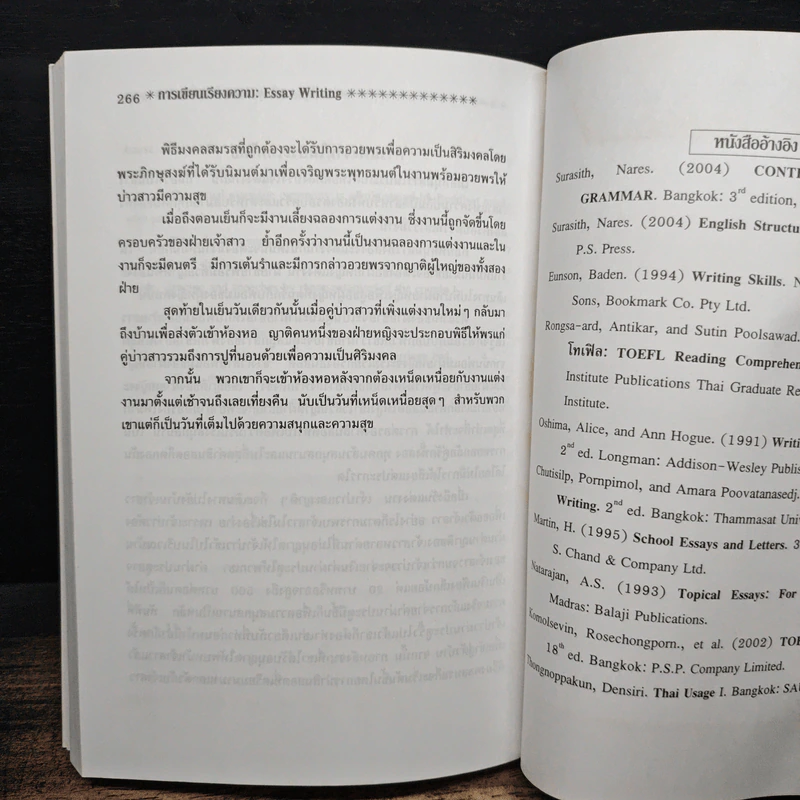 266 * การเขียนเรียงความ: Essay Writing *************
พิธีมงคลสมรสที่ถูกต้องจะได้รับการอวยพรเพื่อความเป็นสิริมงคลโดย
พระภิกษุสงฆ์ที่ได้รับนิมนต์มาเพื่อเจริญพระพุทธมนต์ในงานพร้อมอวยพรให้
บ่าวสาวมีความสุข
เมื่อถึงตอนเย็นก็จะมีงานเลี้ยงฉลองการแต่งงาน ซึ่งงานนี้ถูกจัดขึ้นโดย
ครอบครัวของฝ่ายเจ้าสาว ย้ำอีกครั้งว่างานนี้เป็นงานฉลองการแต่งงานและใน
งานก็จะมีดนตรี มีการเต้นรำและมีการกล่าวอวยพรจากญาติผู้ใหญ่ของทั้งสอง
ฝ่าย
สุดท้ายในเย็นวันเดียวกันนั้นเมื่อคู่บ่าวสาวที่เพิ่งแต่งงานใหม่ๆ กลับมา
ถึงบ้านเพื่อส่งตัวเข้าห้องหอ ญาติคนหนึ่งของฝ่ายหญิงจะประกอบพิธีให้พรแก่
คู่บ่าวสาวรวมถึงการปูที่นอนด้วยเพื่อความเป็นศิริมงคล
จากนั้น พวกเขาก็จะเข้าห้องหอหลังจากต้องเหน็ดเหนื่อยกับงานแต่ง
งานมาตั้งแต่เช้าจนถึงเลยเที่ยงคืน นับเป็นวันที่เหน็ดเหนื่อยสุดๆ สำหรับพวก
เขาแต่ก็เป็นวันที่เต็มไปด้วยความสนุกและความสุข
หนังสืออ้างอิง
Surasith, Nares. (2004) CONTE
GRAMMAR. Bangkok: 3rd edition,
Surasith, Nares. (2004) English Structu
P.S. Press.
Eunson, Baden. (1994) Writing Skills. N
Sons, Bookmark Co. Pty Ltd.
Rongsa-ard, Antikar, and Sutin Poolsawad.
โทเฟิล: TOEFL Reading Comprehen
Institute Publications Thai Graduate Re
Institute.
Oshima, Alice, and Ann Hogue. (1991) Writi
2nd ed. Longman: Addison-Wesley Publis
Chutisilp, Pornpimol, and Amara Poovatanasedj.
Writing. 2nd ed. Bangkok: Thammasat Univ
Martin, H. (1995) School Essays and Letters. 3
S. Chand & Company Ltd.
Natarajan, A.S. (1993) Topical Essays: For
Madras: Balaji Publications.
Komolsevin, Rosechongporn., et al. (2002) TOE
18th ed. Bangkok: P.S.P. Company Limited.
Thongnoppakun, Densiri. Thai Usage I. Bangkok: SAU